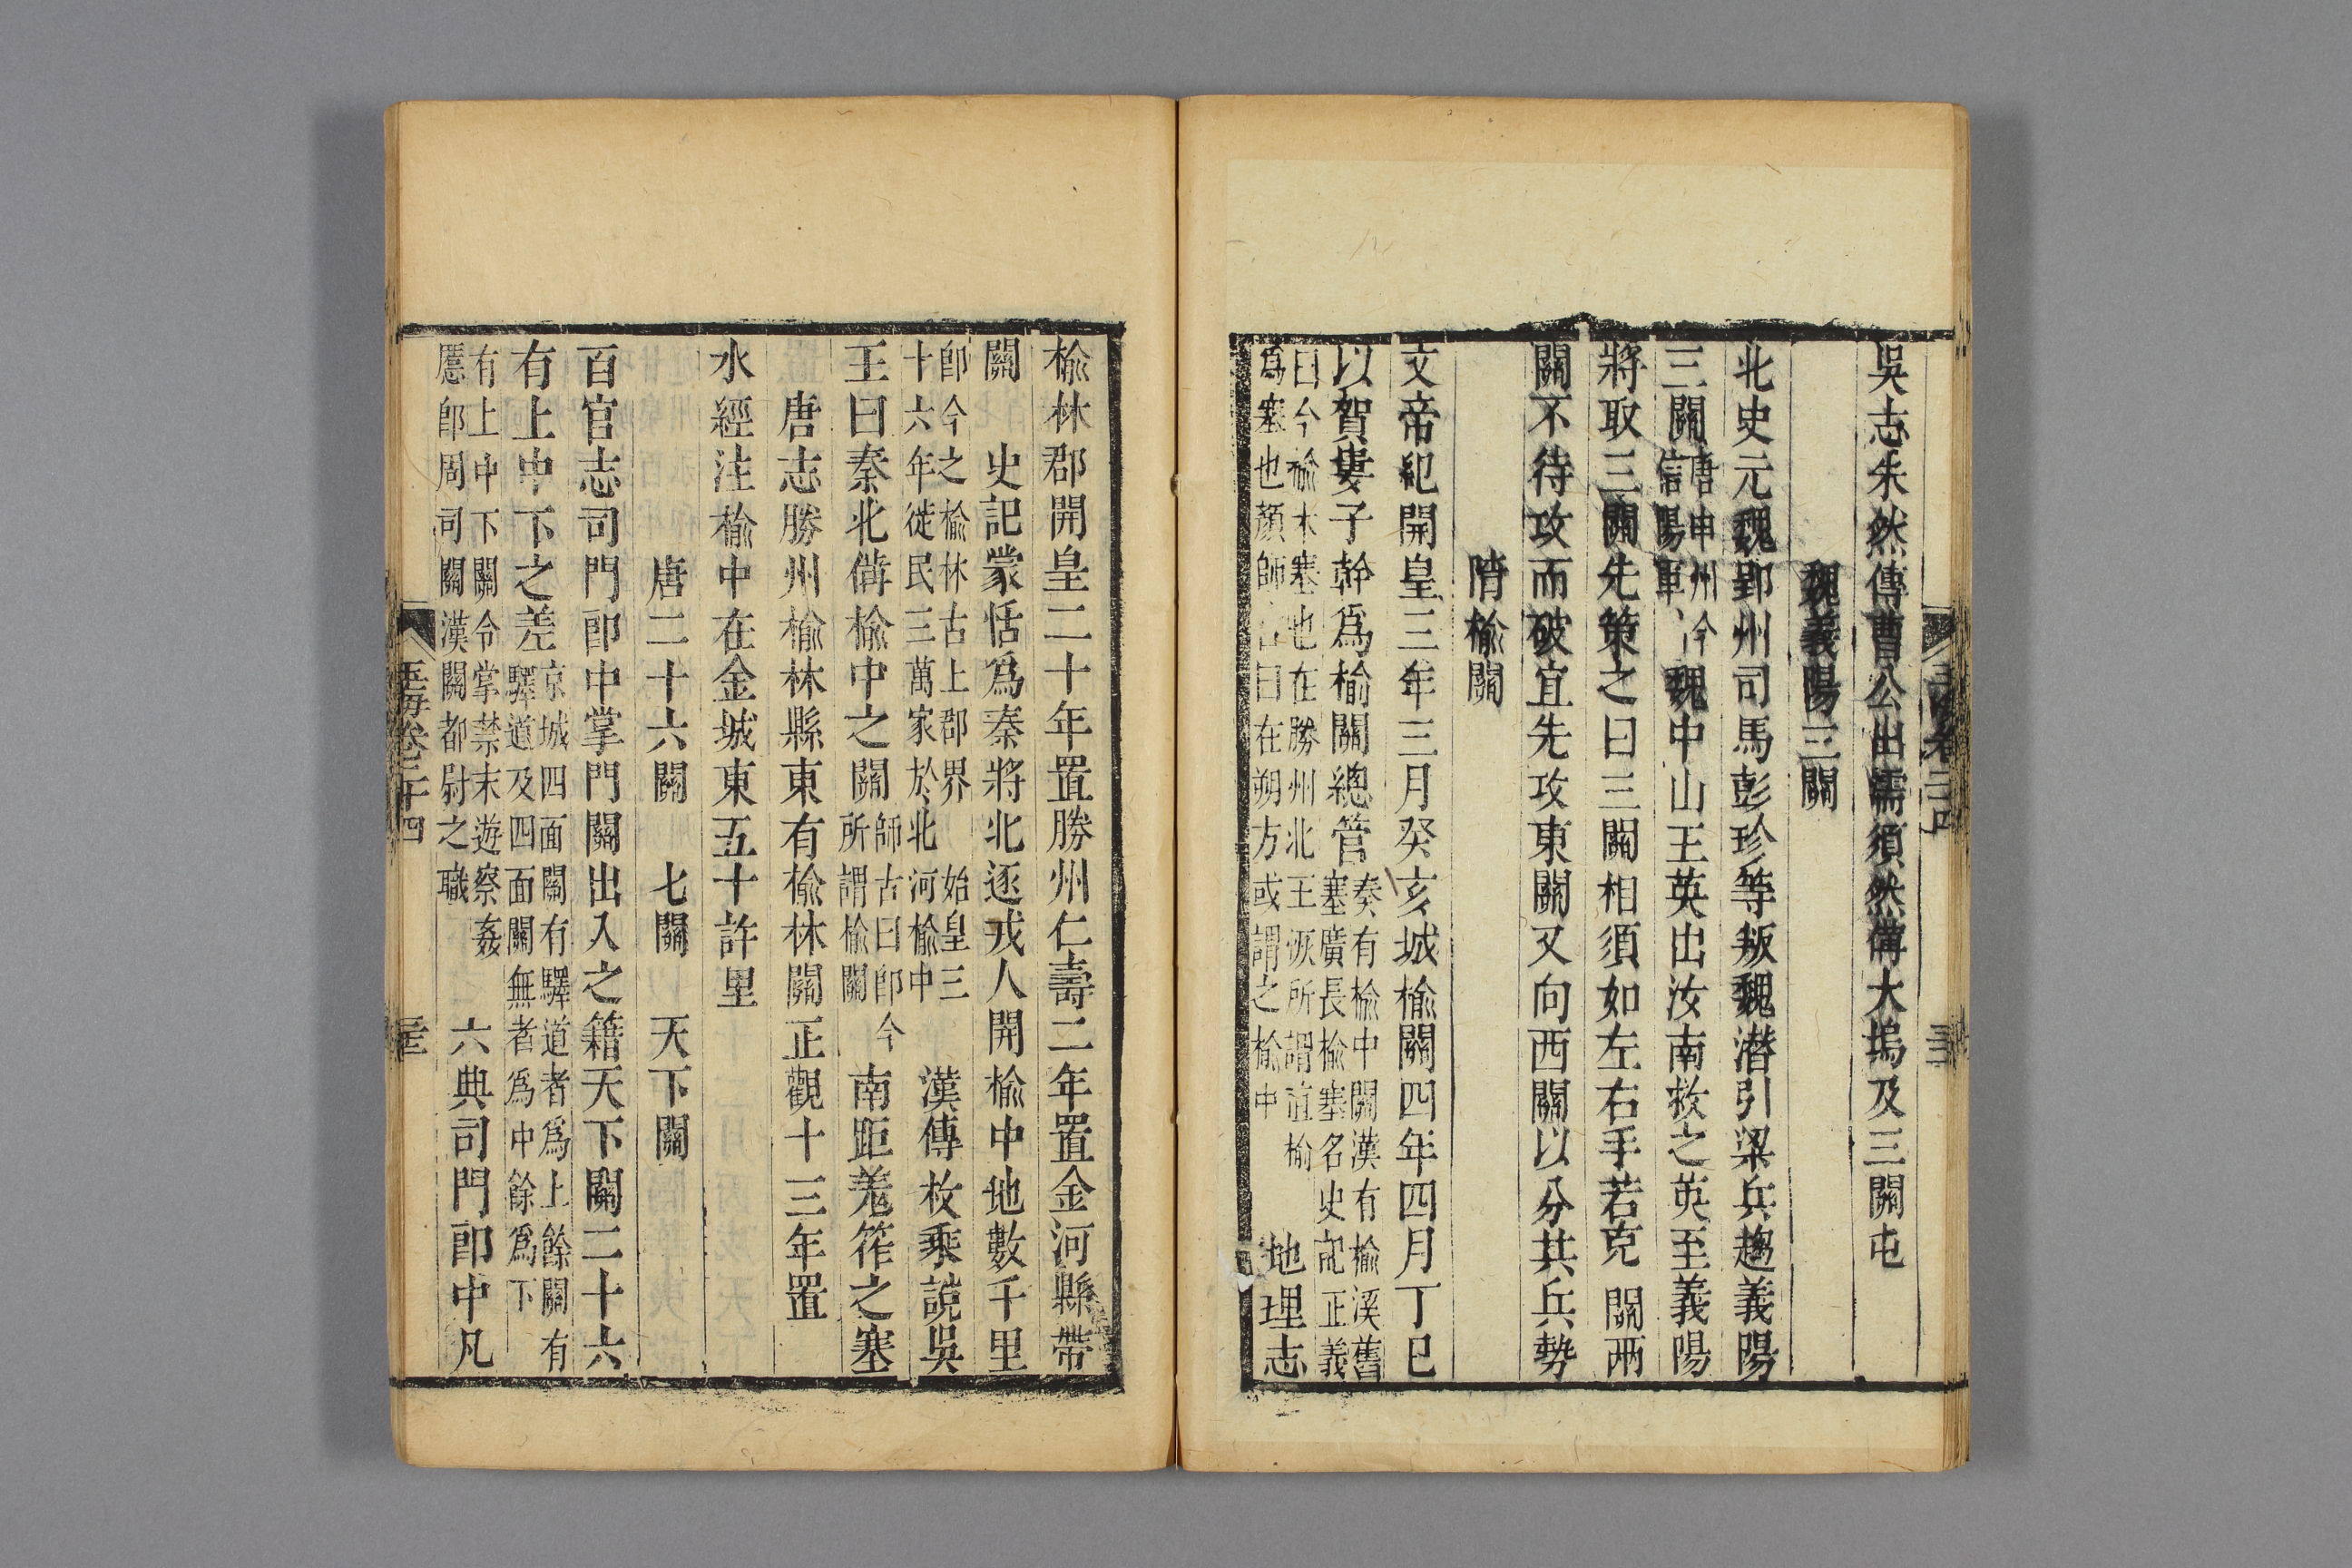 吳志朱然傳曹公出濡須然備大塢及三關屯
魏義陽三關
北史元魏郢州司馬彭珍等叛魏潜引梁兵趨義陽
三關唐申州今信陽軍魏中山王英出汝南救之英至義陽
將取三關先策之曰三關相須如左右手若克關兩
關不待攻而破宜先攻東關又向西關以分其兵勢
隋榆關
文帝紀開皇三年三月癸亥城榆關四年四月丁巳
以賀婁子幹爲榆關總管奏有榆中關漢有榆溪舊塞廣長榆塞名史記正義
曰今榆木塞也在勝州北王恢所謂植榆爲塞也顏師古曰在朔方或謂之榆中地理志
榆林郡開皇二十年置勝州仁壽二年置金河縣帶
關史記蒙恬爲秦將北逐戎人開榆中地數千里
卽今之榆林古上郡界始皇三十六年徙民三萬家於北河榆中漢傳枚乘說吳
王曰秦北備榆中之關師古曰卽今所謂榆關南距羌筰之塞
唐志勝州榆林縣東有榆林關正觀十三年置
水經注榆中在金城東五十許里
唐二十六關 七關 天下關
百官志司門郎中掌門關出入之籍天下關二十六
有上中下之差京城四面關有驛道者爲上餘關有驛道及四面關無者爲中餘爲下
有上中下關令掌禁末遊察姦慝卽周司關漢關都尉之職六典司門郎中凡
玉海卷二十四